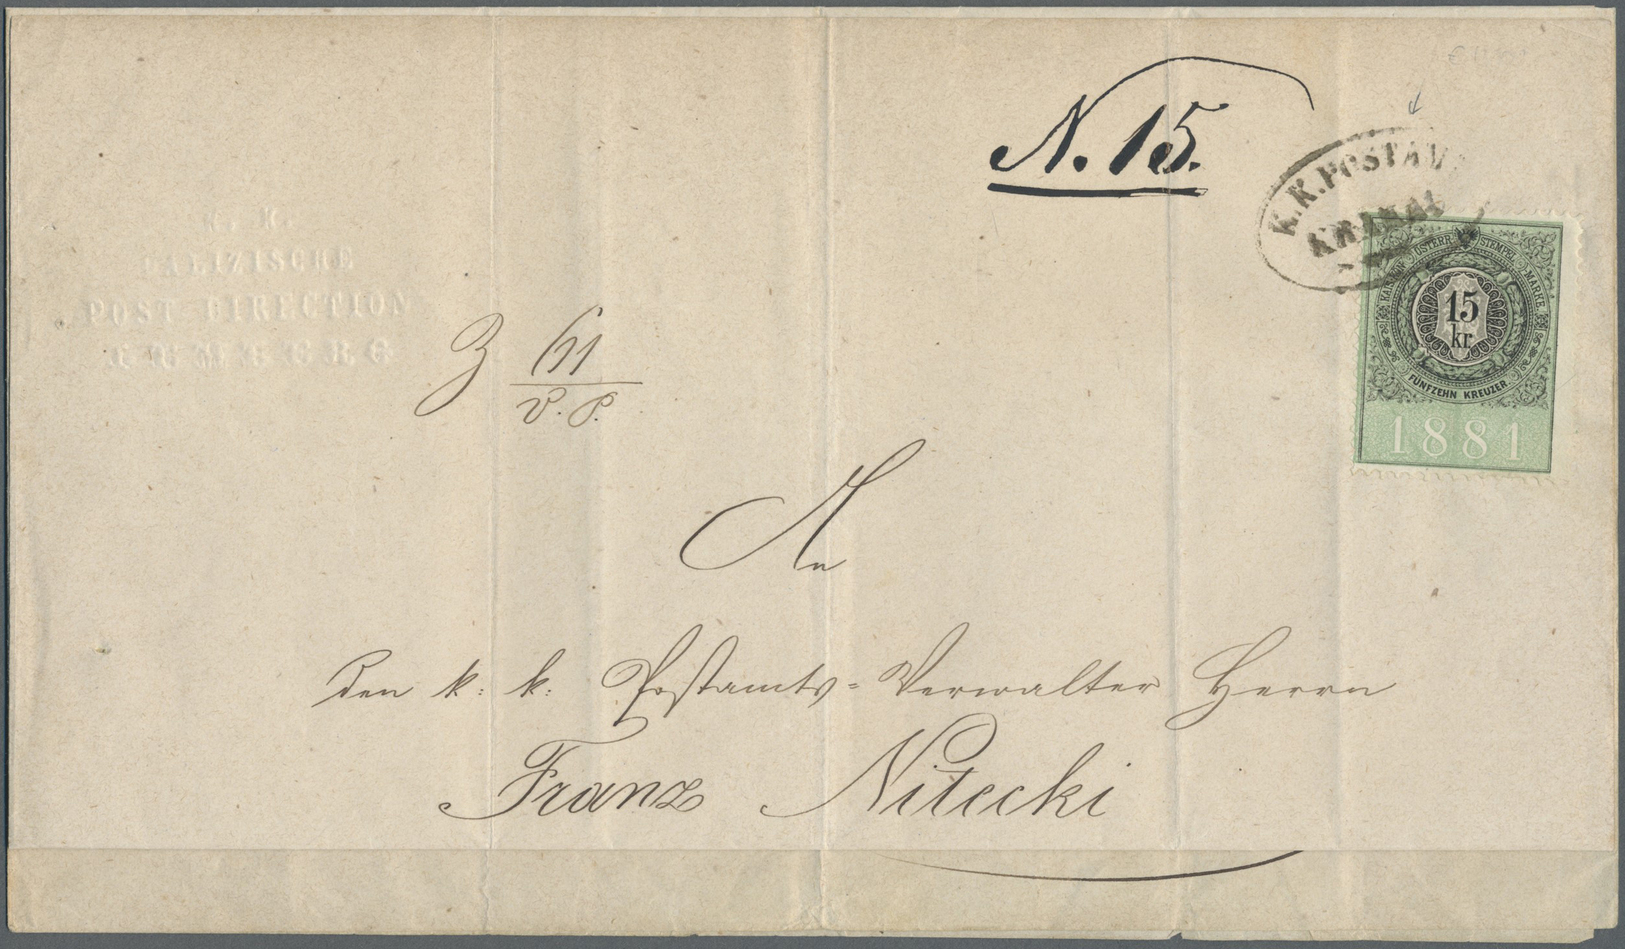 N. 15.
K.K.POSTAM
KRAKAU
K. K.
GALIZISCHE
POST-DIRECTION
LEMBERG
KAIS. KÖN. ÖSTERR. STEMPEL MARKE
15
kr.
FÜNFZEHN KREUZER.
1881
Z 611
V. P.
An
den k: k: Postamts-Verwalter Herrn
Franz Nitecki